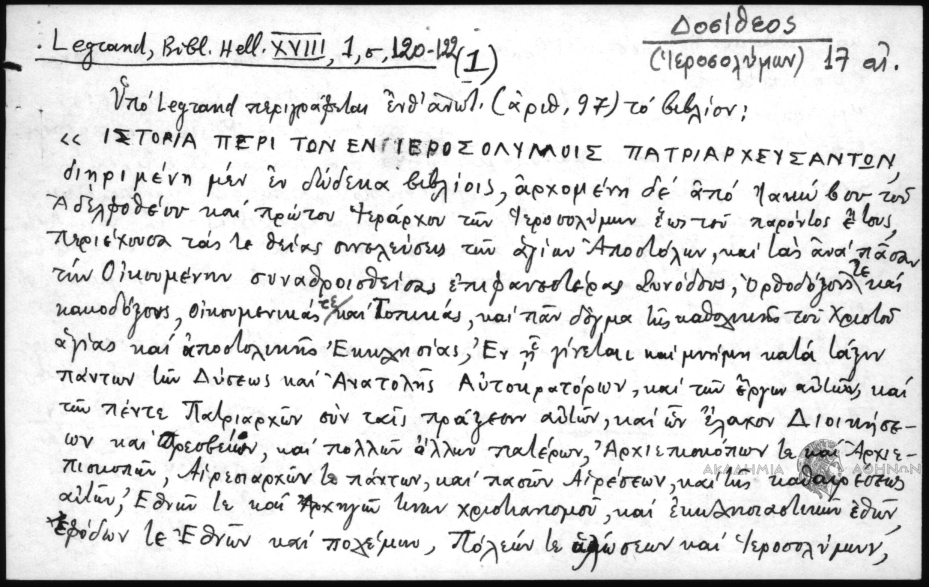 Δοσίθεος
Legrand, Bibl. Hell. XVIII, 1, σ, 120-122 (1)
(Ἱεροσολύμων) 17 αἰ.
Ὑπό Legrand περιγράφεται ἐνθ' ἀνωτ. (ἀριθ. 97) τό βιβλίον:
«ΙΣΤΟΡΙΑ ΠΕΡΙ ΤΩΝ ΕΝ ΙΕΡΟΣΟΛΥΜΟΙΣ ΠΑΤΡΙΑΡΧΕΥΣΑΝΤΩΝ,
διηριμένη μέν ἐν δώδεκα βιβλίοις, ἀρχομένη δέ ἀπό Ἰακώβου τοῦ
Ἀδελφοθέου καί πρώτου Ἱεράρχου τῶν Ἱεροσολύμων ἕως τοῦ παρόντος ἔτους,
περιέχουσα τάς τε θείας συνελεύσεις τῶν ἁγίων Ἀποστόλων, καί τάς ἀνά πᾶσαν
τήν Οἰκουμένην συναθροισθείσας ἐπιφανεστέρας Συνόδους, Ὀρθοδόξους τε καί
κακοδόξους, Οἰκουμενικάς τε καί Τοπικάς, καί πᾶν δόγμα τῆς καθολικῆς τοῦ Χριστοῦ
ἁγίας καί ἀποστολικῆς Ἐκκλησίας, Ἐν ᾗ γίνεται καί μνήμη κατά τάξιν
πάντων τῶν Δύσεως καί Ἀνατολῆς Αὐτοκρατόρων, καί τῶν ἔργων αὐτῶν, καί
τῶν πέντε Πατριαρχῶν σύν ταῖς πράξεσιν αὐτῶν, καί ὧν ἔλαχον Διοικήσε-
ων καί Πρεσβειῶν, καί πολλῶν ἄλλων πατέρων, Ἀρχιεπισκόπων τε καί Ἀρχιε-
πισκοπῶν, Αἱρεσιαρχῶν τε πάντων, καί πασῶν Αἱρέσεων, καί τῆς καθαιρέσεως
αὐτῶν, Ἐθνῶν τε καί Ἀρχηγῶν χριστιανισμοῦ, καί ἐκκλησιαστικῶν ἐθῶν,
ἐφόδων τε Ἐθνῶν καί πολέμων, Πόλεών τε ἁλώσεων καί Ἱεροσολύμων,
ΑΚΑΔΗΜΙΑ ΑΘΗΝΩΝ